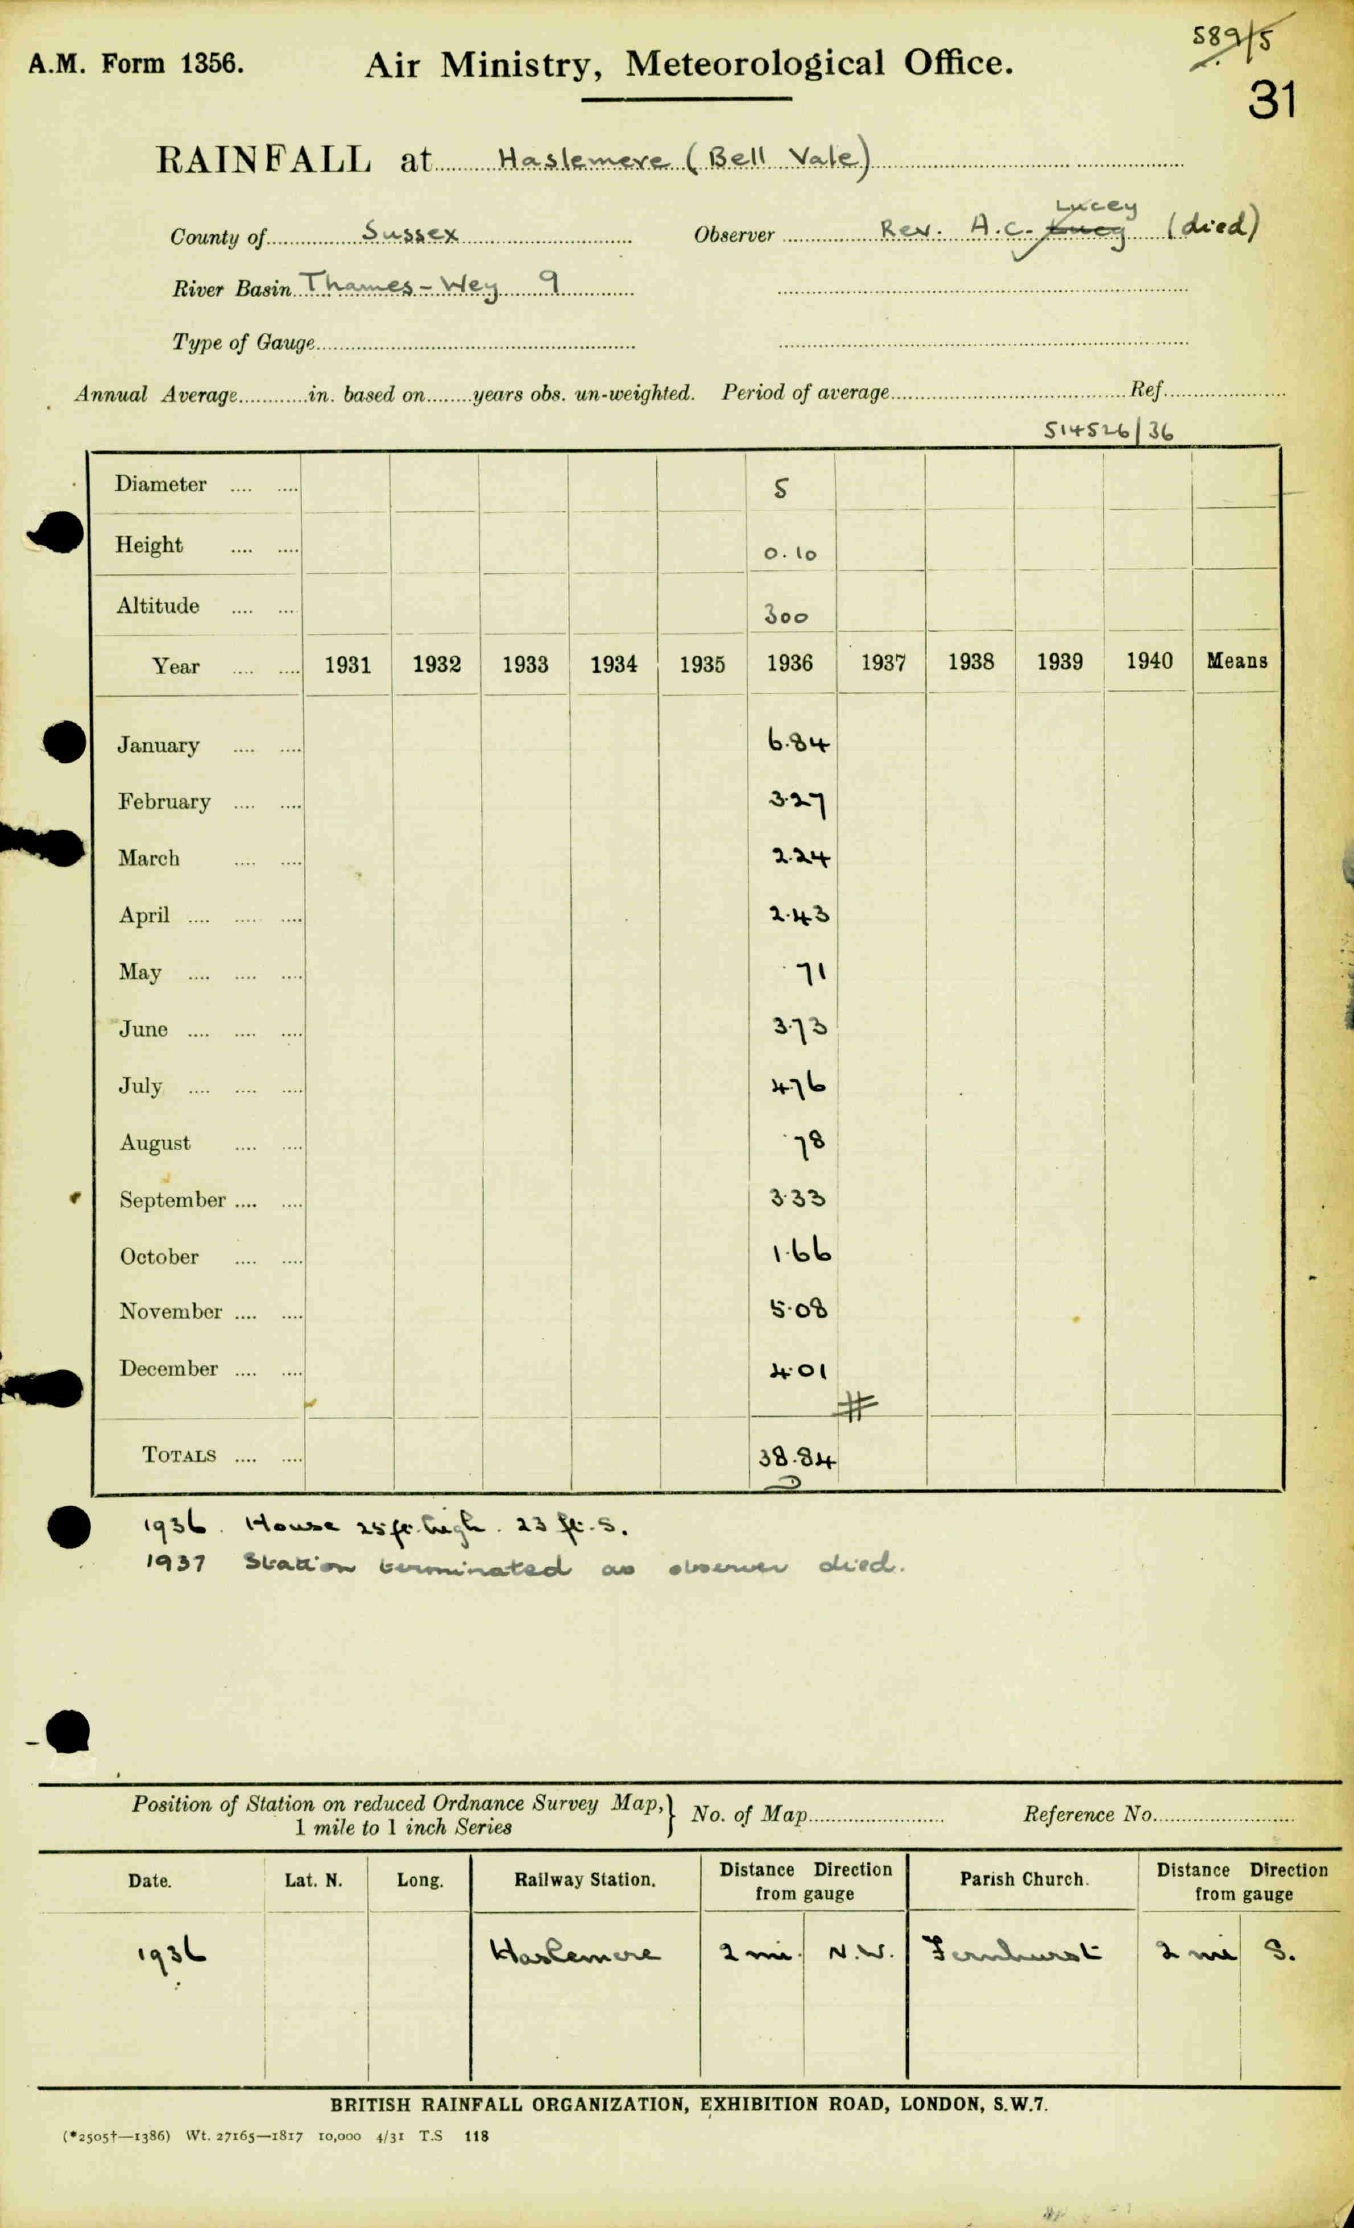 589/5
A.M. Form 1356. Air Ministry, Meteorological Office.
31
RAINFALL at Haslemere (Bell Vale)
Lucey
County of Sussex Observer Rev. A.C. Lucy (died)
River Basin Thames-Wey 9
Type of Gauge
Annual Average in. based on years obs. un-weighted. Period of average Ref.
514526/36
Diameter 5
Height 0.10
Altitude 300
Year 1931 1932 1933 1934 1935 1936 1937 1938 1939 1940 Means
January 6.84
February 3.27
March 2.24
April 2.43
May .71
June 3.73
July 4.76
August .78
September 3.33
October 1.66
November 5.08
December 4.01
TOTALS 38.84
1936. House 25 ft. high. 23 ft. S.
1937 Station terminated as observer died.
Position of Station on reduced Ordnance Survey Map,} No. of Map Reference No.
1 mile to 1 inch Series
Date. Lat. N. Long. Railway Station. Distance Direction from gauge Parish Church. Distance Direction from gauge
1936 Haslemere 2 mi. N.W. Fernhurst 2 mi S.
BRITISH RAINFALL ORGANIZATION, EXHIBITION ROAD, LONDON, S.W.7.
(*2505†—1386) Wt. 27165—1817 10,000 4/31 T.S 118